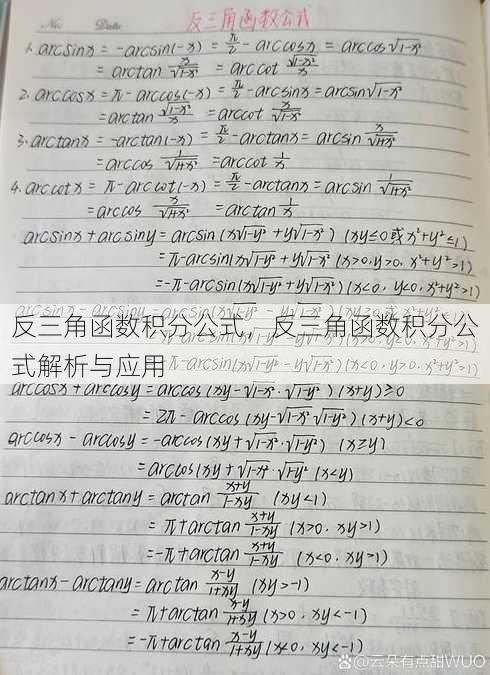 No. Date 反三角函数公式
1. arcsinx = -arcsin(-x) = π/2 - arccosx = arccos√1-x²
= arctan x/√1-x² = arccot √1-x²/x
2. arccosx = π - arccos(-x) = π/2 - arcsinx = arcsin√1-x²
= arctan √1-x²/x = arccot x/√1-x²
3. arctanx = -arctan(-x) = π/2 - arctanx = arcsin x/√1+x²
= arccos 1/√1+x² = arccot 1/x
4. arccotx = π - arccot(-x) = π/2 - arctanx = arcsin 1/√1+x²
= arccos x/√1+x² = arctan 1/x
arcsinx + arcsiny = arcsin(x√1-y² + y√1-x²) (xy≤0或x²+y²≤1)
= π - arcsin(x√1-y² + y√1-x²) (x>0, y>0, x²+y²>1)
= -π - arcsin(x√1-y² + y√1-x²) (x<0, y<0, x²+y²>1)
反三角函数积分公式，反三角函数积分公
式解析与应用
arccosx + arccosy = arccos(xy - √1-x²·√1-y²) (x+y)≥0
= 2π - arccos(xy - √1-x²·√1-y²) (x+y)<0
arccosx - arccosy = -arccos(xy + √1-x²·√1-y²) (x≥y)
= arccos(xy + √1-x²·√1-y² (x<y)
arctanx + arctany = arctan x+y/1-xy (xy<1)
= π + arctan x+y/1-xy (x>0, xy>1)
= -π + arctan x+y/1-xy (x<0, xy>1)
arctanx - arctany = arctan x-y/1+xy (xy>-1)
= π + arctan x-y/1+xy (x>0, xy<-1)
= -π + arctan x-y/1+xy (x<0, xy<-1)
知乎 @云朵有点甜WUO